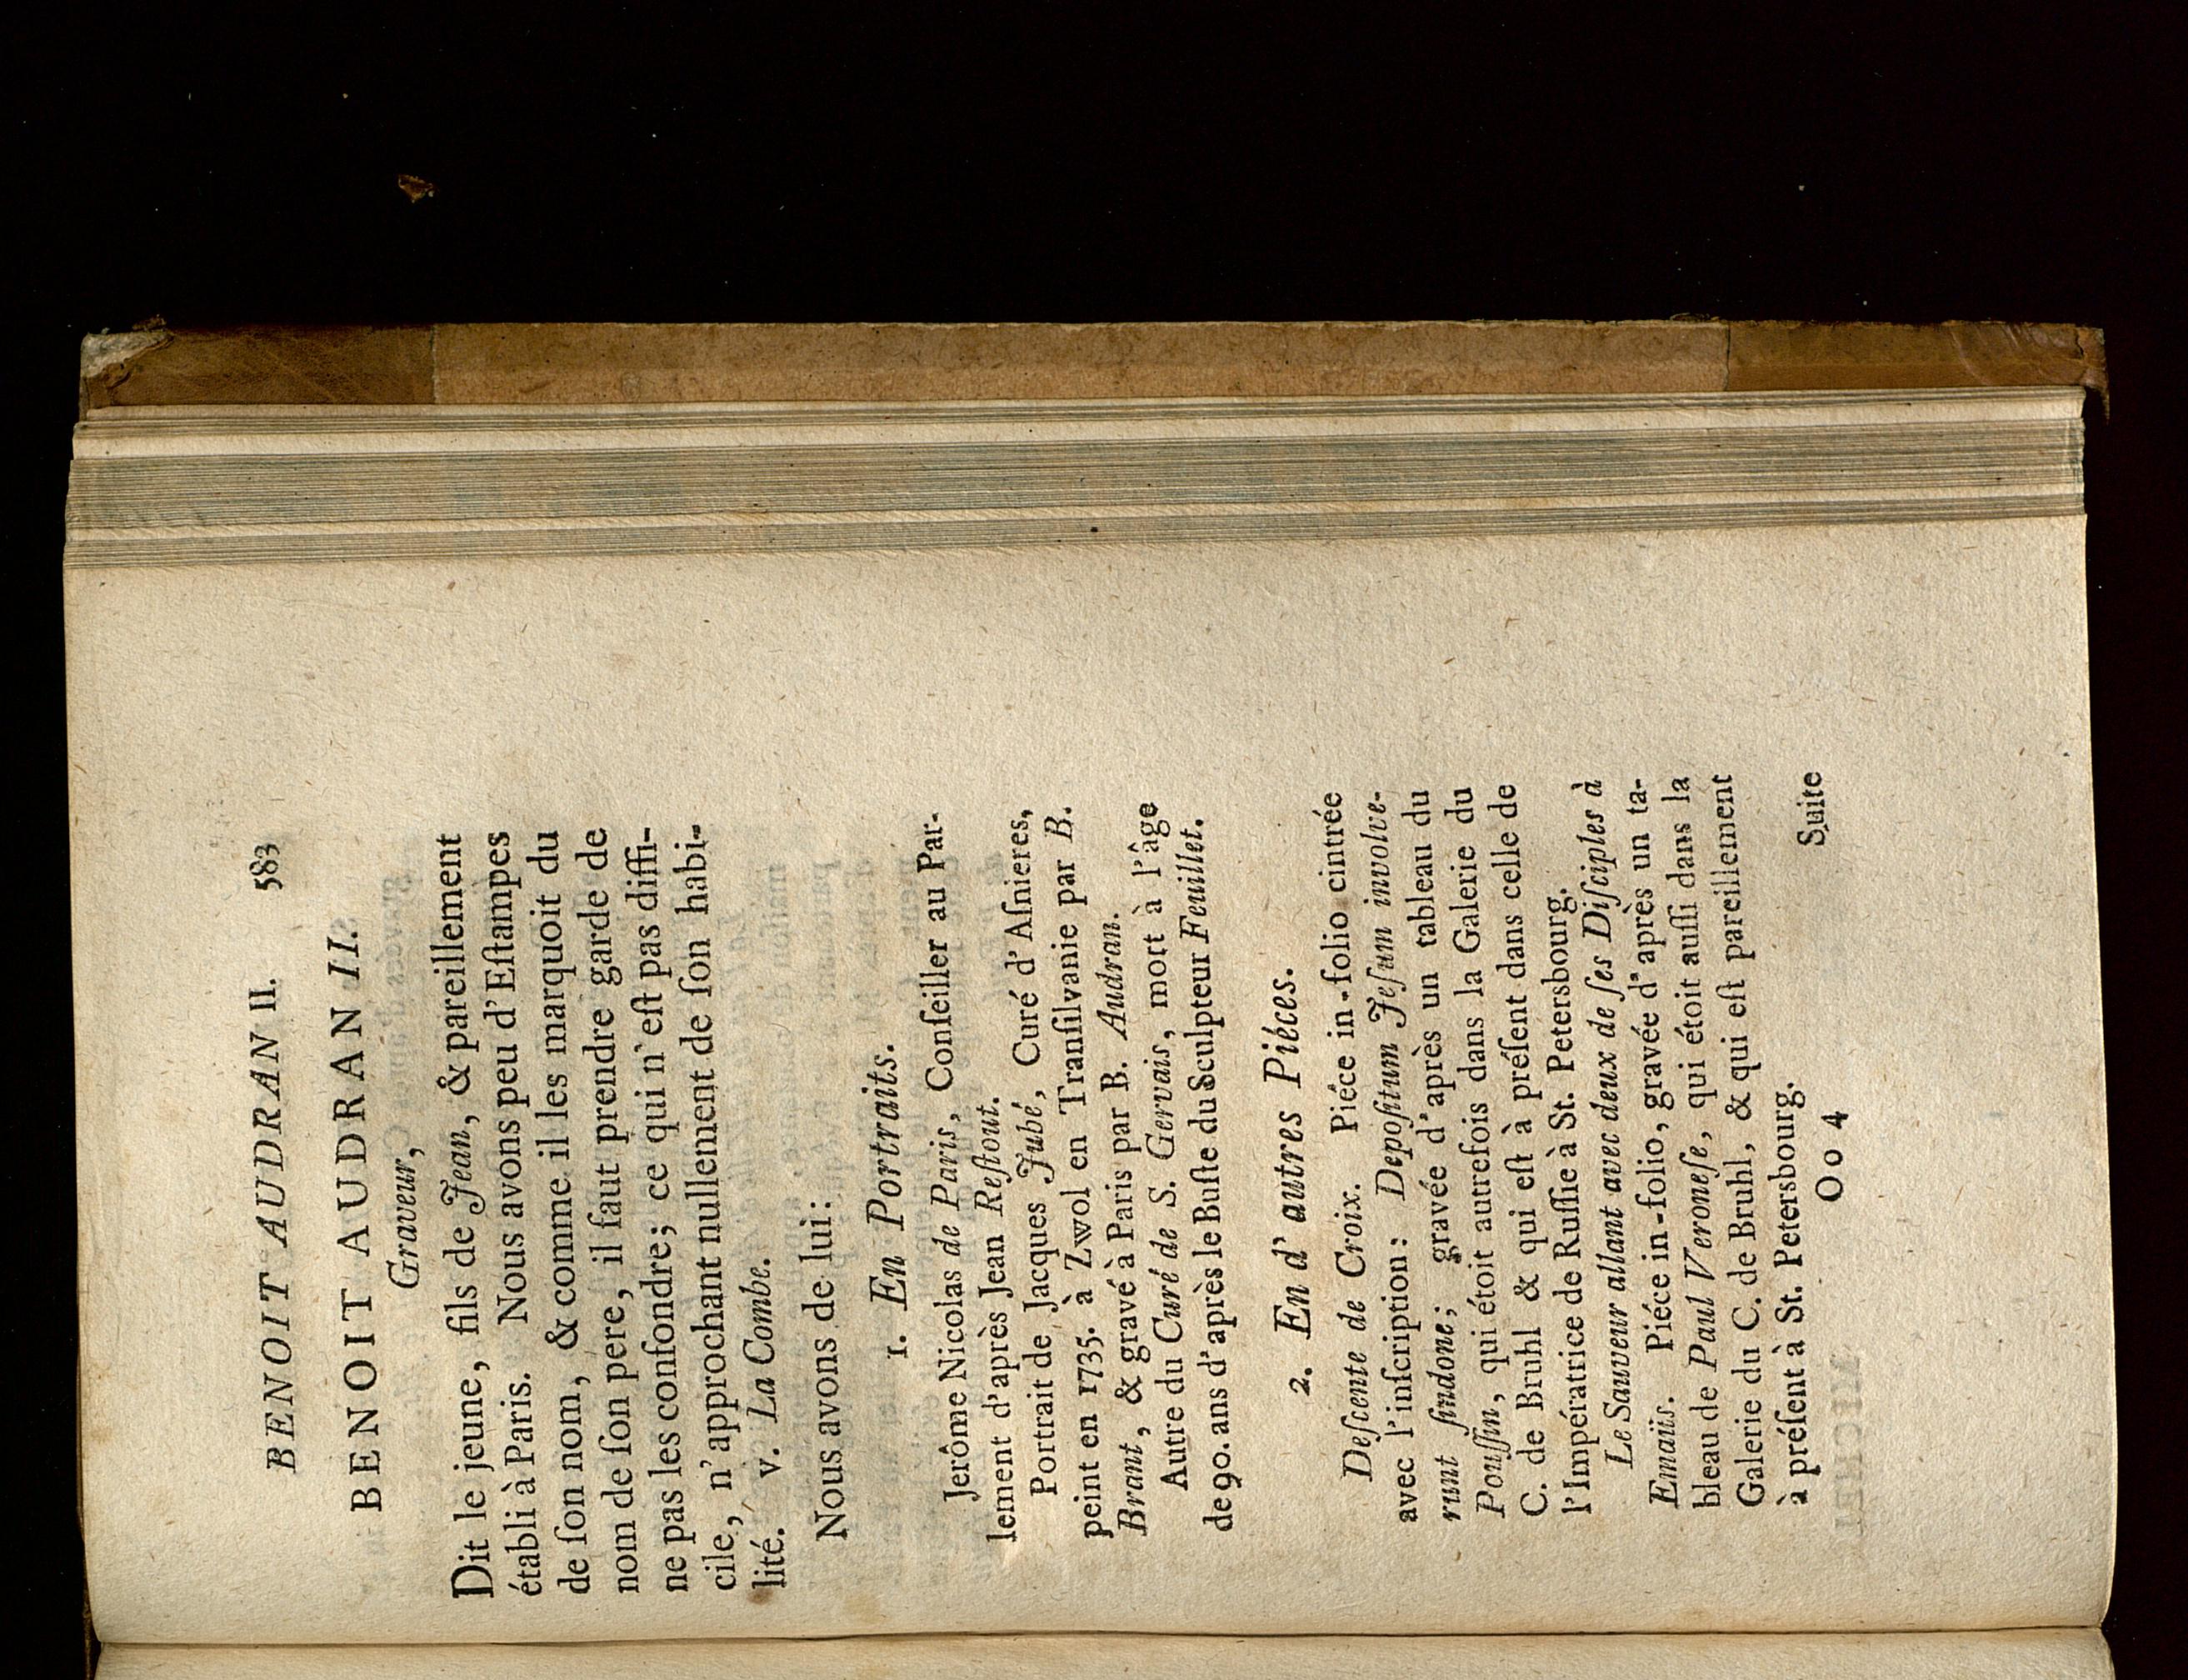 BENOIT AUDRAN II. 583
BENOIT AUDRAN II.
Graveur,
Dit le jeune, fils de Jean, & pareillement
établi à Paris. Nous avons peu d'Eſtampes
de ſon nom, & comme il les marquoit du
nom de ſon pere, il faut prendre garde de
ne pas les confondre; ce qui n'eſt pas diffi-
cile, n'approchant nullement de ſon habi-
lité. v. La Combe.
Nous avons de lui:
1. En Portraits.
Jerôme Nicolas de Paris, Conſeiller au Par-
lement d'après Jean Reſtout.
Portrait de Jacques Jubé, Curé d'Aſnieres,
peint en 1735. à Zwol en Tranſilvanie par B.
Brant, & gravé à Paris par B. Audran.
Autre du Curé de S. Gervais, mort à l'âge
de 90. ans d'après le Buſte du Sculpteur Feuillet.
2. En d'autres Piéces.
Deſcente de Croix. Piéce in-folio cintrée
avec l'inſcription: Depoſitum Jeſum involve-
runt ſindone; gravée d'après un tableau du
Pouſſin, qui étoit autrefois dans la Galerie du
C. de Bruhl & qui eſt à préſent dans celle de
l'Impératrice de Ruſſie à St. Petersbourg.
Le Sauveur allant avec deux de ſes Diſciples à
Emaüs. Piéce in-folio, gravée d'après un ta-
bleau de Paul Veroneſe, qui étoit auſſi dans la
Galerie du C. de Bruhl, & qui eſt pareillement
à préſent à St. Petersbourg.
Oo 4 Suite